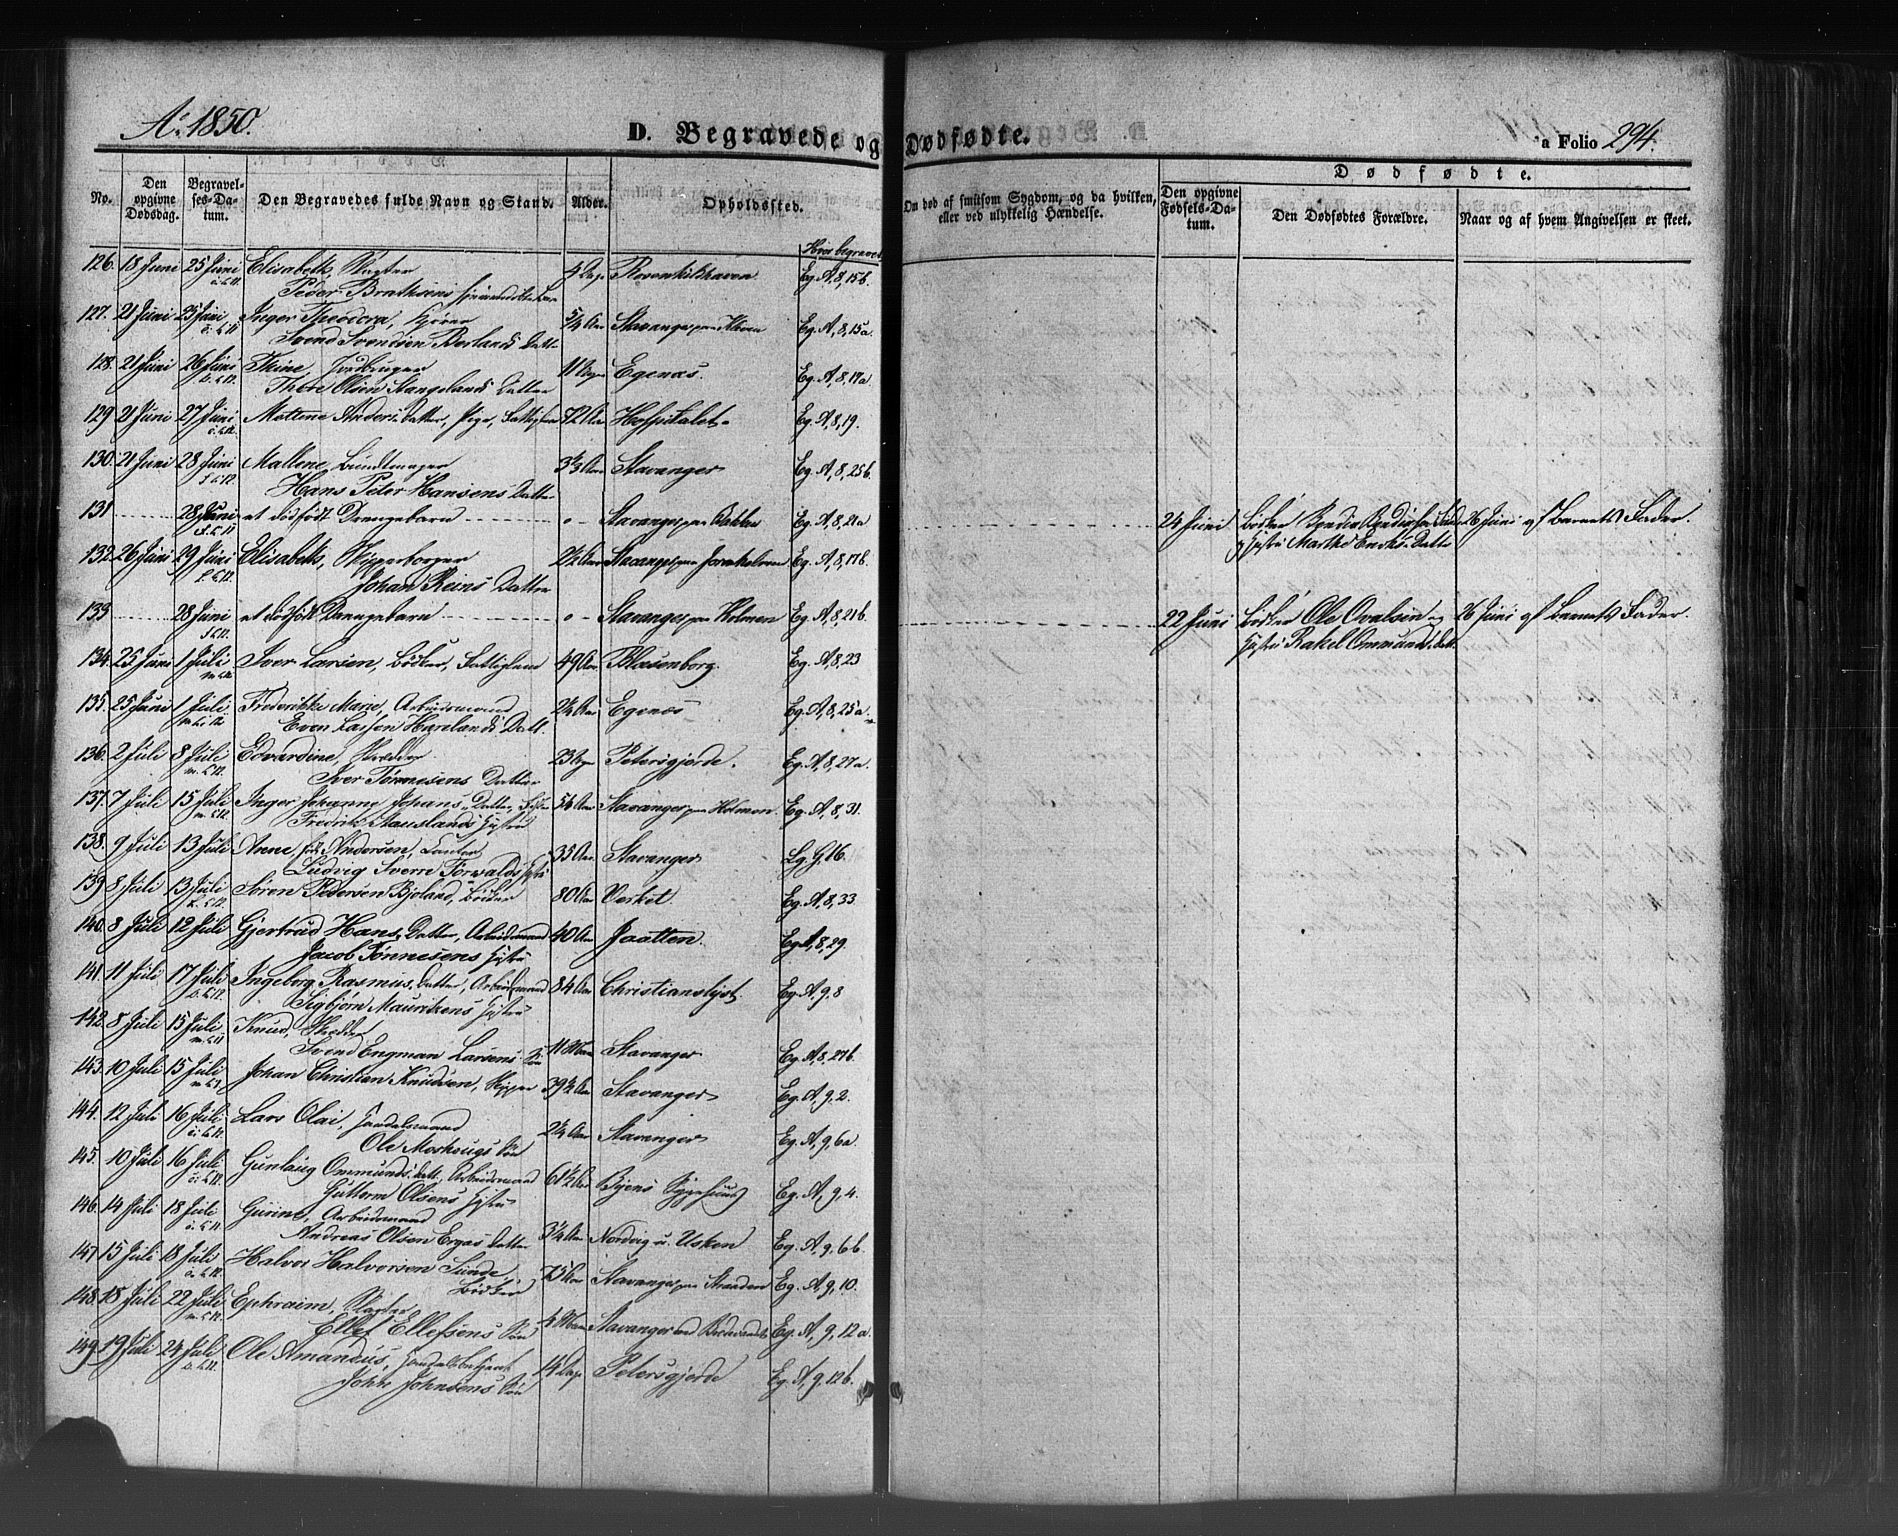 Ao 1850.
D. Begravede og Dødfødte.
a Folio 294.
No.
Den opgivne Dødsdag.
Begravelses-Datum.
Den Begravedes fulde Navn og Stand.
Alder.
Opholdssted.
Om død af smitsom Sygdom, og da hvilken, eller ved ulykkelig Hændelse.
Dødfødte.
Den opgivne Fødsels-Datum.
Den Dødfødtes Forældre.
Naar og af hvem Angivelsen er skeet.
Hvor begravet
126. 18 Juni 25 Juni Elisabeth, 4 Dage Rosenkildehaven Eg. A, 8, 15b.
Peder
127. 21 Juni 25 Juni Inger Theodora, 5/4 Aar Stavanger paa Kleven Eg. A, 8, 15a
Svend Svendsen Datter
128. 21 Juni 26 Juni Thine, Jordbruger 11 Egenæs. Eg. A, 8, 17a
Thore Olsen Stangelands Datter
129 21 Juni 27 Juni Mallene Anders Datter, Pige, Fattiglem 72 Aar Hospitalet. Eg. A, 8, 19.
130. 21 Juni 28 Juni Mallene, Bundtmager 3 1/3 Aar Stavanger Eg. A, 8, 25b.
Hans Peter Hansens Datter
131 28 Juni et dødfødt Drengebarn o Stavanger paa Bakken Eg. A, 8, 21a 24 Juni Bødker 26 Juni af Barnets Fader.
Hustru Marthe Datter
132. 26 Juni 29 Juni Elisabeth, Skipperborger 2 1/2 Aar Stavanger paa Eg. A, 8, 17b.
Johan Reins Datter
133 28 Juni et dødfødt Drengebarn o Stavanger paa Holmen Eg. A, 8, 21b 22 Juni Bødker Ole 26 Juni af Barnets Fader.
Hustru Rakel Ommunds Datt
134. 25 Juni 1 Juli Iver Larsen, Bødker, Fattiglem 49 Aar Blaasenborg. Eg. A, 8, 23
135. 25 Juni 1 Juli Frederikke Marie, Arbeidsmand 2 1/4 Aar Egenæs Eg. A, 8, 25a
Even Larsen Harelands Datt.
136. 2 Juli 8 Juli Edvardine, Skrædder 23 Petersgjerde. Eg. A, 8, 27a.
Iver Tønnesens Datter
137. 7 Juli 15 Juli Inger Johanne Johans Datter, 56 Aar Stavanger paa Holmen. Eg. A, 8, 31.
Fredrik Hustru
138. 9 Juli 13 Juli Anne, Andersen, 35 Aar Stavanger Lg. G. 16.
Ludvig Sverre Hustru
139 8 Juli 13 Juli Søren Pedersen Bjoland, Bødker 80 Aar Verket Eg. A, 8, 33
140. 8 Juli 12 Juli Gjertrud Hans Datter, Arbeidsmand 40 Aar Jaatten. Eg. A, 8, 29.
Jacob Tønnesens Hustru
141. 11 Juli 17 Juli Ingeborg Rasmus Datter, Arbeidsmand 84 Aar Christianslyst. Eg. A, 9, 8
Sigbjørn Mauritzens Hustru
142. 8 Juli 15 Juli Knud, Skrædder
Svend Engman Larsens Søn 11 Stavanger Eg. A, 8, 27b.
143. 10 Juli 15 Juli Johan Christian Knudsen, Skipper 39 1/2 Aar Stavanger Eg. A, 9, 2.
144. 12 Juli 16 Juli Lars Olai, Handelsmand
Ole Søn 2 1/4 Aar Stavanger Eg. A, 9, 6a.
145. 10 Juli 16 Juli Gunlaug Ommunds Datt, Arbeidsmand 61 1/2 Aar Byens Sygehuus Eg. A, 9, 4.
Guttorm Olsens Hustru
146. 14 Juli 18 Juli Gurine, Arbeidsmand
Andreas Olsen Ergas Datter 3 1/4 Aar Nordvig Usken Eg. A, 9, 6b.
147 15 Juli 18 Juli Halvor Halvorsen Sunde, 75 Aar Stavanger paa Stranden Eg. A, 9, 10.
Bødker
148. 18 Juli 22 Juli Ephraim,
Ellef Ellefsens Søn 4 Stavanger ved Bredevandet Eg. A, 9, 12a.
149. 19 Juli 24 Juli Ole Amandus, Handelsbetjent 14 Dage Petersgjerde Eg. A, 9, 12b.
John Johnsens Søn